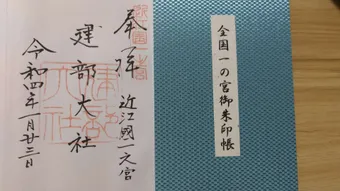 全国一の宮御朱印帳
奉拝
近江國一之宮
建部大社
令和四年一月廿三日